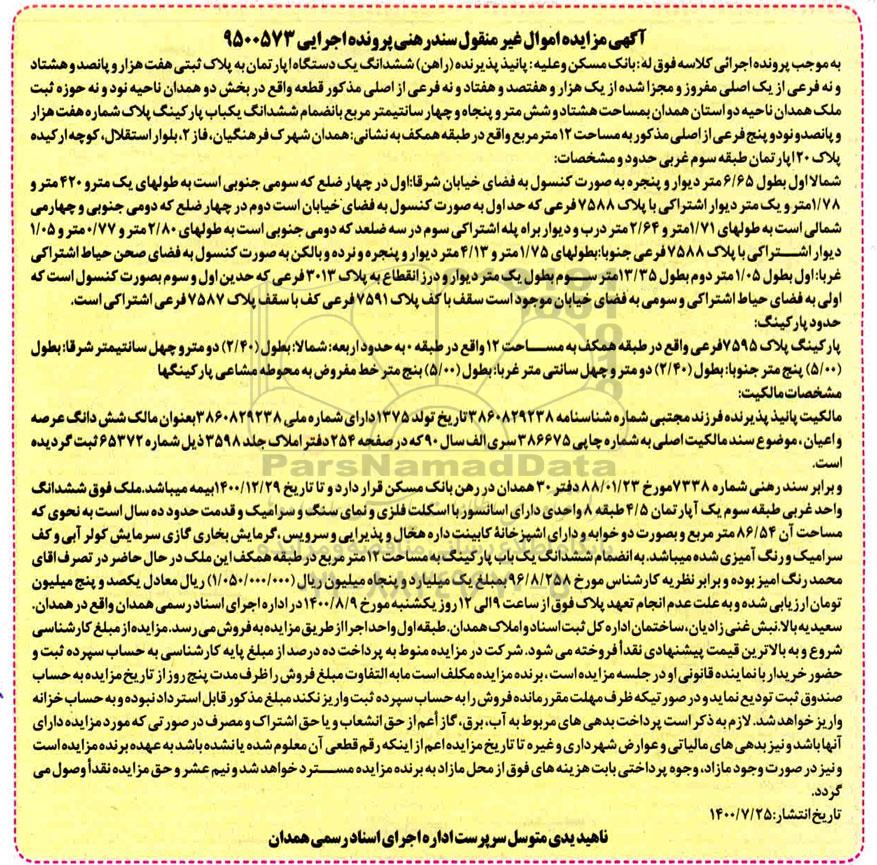 آگهی مزایده اموال غیر منقول سند رهنی پرونده اجرایی ۹۵۰۰۵۷۳
به موجب پرونده اجرائی کلاسه فوق له: بانک مسکن و علیه: پانیذ پذیرنده (راهن) ششدانگ یک دستگاه اپارتمان به پلاک ثبتی هفت هزار و پانصد و هشتاد
و نه فرعی از یک اصلی مفروز و مجزا شده از یک هزار و هفتصد و هفتاد و نه فرعی از اصلی مذکور قطعه واقع در بخش دو همدان ناحیه نود و نه حوزه ثبت
ملک همدان ناحیه دو استان همدان بمساحت هشتاد و شش متر و پنجاه و چهار سانتیمتر مربع بانضمام ششدانگ یکباب پارکینگ پلاک شماره هفت هزار
و پانصدونود و پنج فرعی از اصلی مذکور به مساحت ۱۲ متر مربع واقع در طبقه همکف به نشانی: همدان شهرک فرهنگیان، فاز ۲، بلوار استقلال، کوچه ارکیده
پلاک ۱۲۰ اپارتمان طبقه سوم غربی حدود و مشخصات:
شمالا اول بطول ۶/۶۵ متر دیوار و پنجره به صورت کنسول به فضای خیابان شرقا: اول در چهار ضلع که سومی جنوبی است به طولهای یک مترو ۴۲۰ متر و
۱/۷۸متر و یک متر دیوار اشتراکی با پلاک ۷۵۸۸ فرعی که حد اول به صورت کنسول به فضای خیابان است دوم در چهار ضلع که دومی جنوبی و چهارمی
شمالی است به طولهای ۱/۷۱متر و ۲/۶۴ متر درب و دیوار براه پله اشتراکی سوم در سه ضلعد که دومی جنوبی است به طولهای ۲/۸۰ متر و ۰/۷۷متر و ۱/۰۵
دیوار اشتراکی با پلاک ۷۵۸۸ فرعی جنوبا: بطولهای ۱/۷۵متر و ۴/۱۳ متر دیوار و پنجره و نرده و بالکن به صورت کنسول به فضای صحن حیاط اشتراکی
غربا: اول بطول ۱/۰۵ متر دوم بطول ۱۳/۳۵متر سوم بطول یک متر دیوار و درز انقطاع به پلاک ۳۰۱۳ فرعی که حدین اول و سوم بصورت کنسول است که
اولی به فضای حیاط اشتراکی و سومی به فضای خیابان موجود است سقف با کف پلاک ۷۵۹۱ فرعی کف با سقف پلاک ۷۵۸۷ فرعی اشتراکی است.
حدود پارکینگ:
پارکینگ پلاک ۷۵۹۵فرعی واقع در طبقه همکف به مساحت ۱۲ واقع در طبقه ۰ به حدود اربعه: شمالا: بطول (۲/۴۰) دو متر و چهل سانتیمتر شرقا: بطول
(۵/۰۰) پنج متر جنوبا: بطول (۲/۴۰) دو متر و چهل سانتی متر غربا: بطول (۵/۰۰) بنج متر خط مفروض به محوطه مشاعی پارکینگها
مشخصات مالکیت:
مالکیت پانیذ پذیرنده فرزند مجتبی شماره شناسنامه ۳۸۶۰۸۲۹۲۳۸ تاریخ تولد ۱۳۷۵ دارای شماره ملی ۳۸۶۰۸۲۹۲۳۸ بعنوان مالک شش دانگ عرصه
و اعیان، موضوع سند مالکیت اصلی به شماره چاپی ۳۸۶۶۷۵ سری الف سال ۹۰ که در صفحه ۲۵۴ دفتر املاک جلد ۳۵۹۸ ذیل شماره ۶۵۳۷۲ ثبت گردیده
است.
و برابر سند رهنی شماره ۷۳۳۸مورخ ۸۸/۰۱/۲۳ دفتر ۳۰ همدان در رهن بانک مسکن قرار دارد و تا تاریخ ۱۴۰۰/۱۲/۲۹بیمه میباشد. ملک فوق ششدانگ
واحد غربی طبقه سوم یک آپارتمان ۴/۵ طبقه ۸ واحدی دارای اسانسور با اسکلت فلزی و نمای سنگ و سرامیک و قدمت حدود ده سال است به نحوی که
مساحت آن ۸۶/۵۴ متر مربع و بصورت دو خوابه و دارای اشپزخانۀ کابینت داره هخال و پذیرایی و سرویس، گرمایش بخاری گازی سرمایش کولر آبی و کف
سرامیک و رنگ آمیزی شده میباشد. به انضمام ششدانگ یک باب پارکینگ به مساحت ۱۲ متر مربع در طبقه همکف این ملک در حال حاضر در تصرف اقای
محمد رنگ امیز بوده و برابر نظریه کارشناس مورخ ۹۶/۸/۲۵۸ بمبلغ یک میلیارد و پنجاه میلیون ریال (۱/۰۵۰/۰۰۰/۰۰۰) ریال معادل یکصد و پنج میلیون
تومان ارزیابی شده و به علت عدم انجام تعهد پلاک فوق از ساعت ۹الی ۱۲ روز یکشنبه مورخ ۱۴۰۰/۸/۹ در اداره اجرای اسناد رسمی همدان واقع در همدان.
سعیدیه بالا. نبش غنی زادیان، ساختمان اداره کل ثبت اسناد و املاک همدان. طبقه اول واحد اجرا از طریق مزایده به فروش می رسد. مزایده از مبلغ کارشناسی
شروع و به بالاترین قیمت پیشنهادی نقداً فروخته می شود. شرکت در مزایده منوط به پرداخت ده درصد از مبلغ پایه کارشناسی به حساب سپرده ثبت و
حضور خریدار با نماینده قانونی او در جلسه مزایده است، برنده مزایده مکلف است مابه التفاوت مبلغ فروش را ظرف مدت پنج روز از تاریخ مزایده به حساب
صندوق ثبت تودیع نماید و در صورتیکه ظرف مهلت مقرر مانده فروش را به حساب سپرده ثبت واریز نکند مبلغ مذکور قابل استرداد نبوده و به حساب خزانه
واریز خواهد شد. لازم به ذکر است پرداخت بدهی های مربوط به آب، برق، گاز أعم از حق انشعاب و یا حق اشتراک و مصرف در صورتی که مورد مزایده دارای
آنها باشد و نیز بدهی های مالیاتی و عوارض شهرداری و غیره تا تاریخ مزایده اعم از اینکه رقم قطعی آن معلوم شده یا نشده باشد به عهده برنده مزایده است
و نیز در صورت وجود مازاد، وجوه پرداختی بابت هزینه های فوق از محل مازاد به برنده مزایده مسترد خواهد شد و نیم عشر و حق مزایده نقداً وصول می
گردد.
تاریخ انتشار: ۱۴۰۰/۷/۲۵
ناهید یدی متوسل سرپرست اداره اجرای اسناد رسمی همدان
ParsNamadData